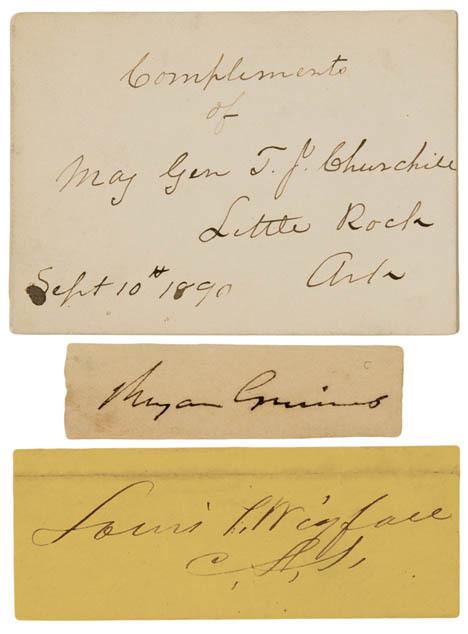 Compliments
of
Maj Gen T. J. Churchill
Little Rock
Ark
Sept 10th 1890
Bryan Grimes
Louis T. Wigfall
C, S, S,